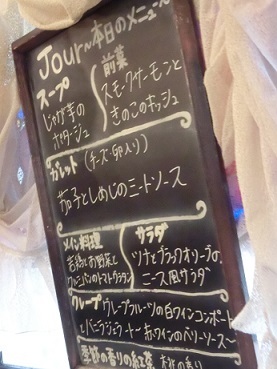 Jour~本日のメニュー~
スープ
じゃが芋の
ポタージュ
前菜
スモークサーモンと
きのこのキッシュ
ガレット (チーズ・卵入り)
茄子としめじのミートソース
メイン料理
若鶏とお野菜と
クルミパンのトマトグラタン
サラダ
ツナとブラックオリーブの
ニース風サラダ
クレープ グレープフルーツの白ワインコンポート
とバニラジェラート~赤ワインのベリーソース~
季節の香りの紅茶 の香り